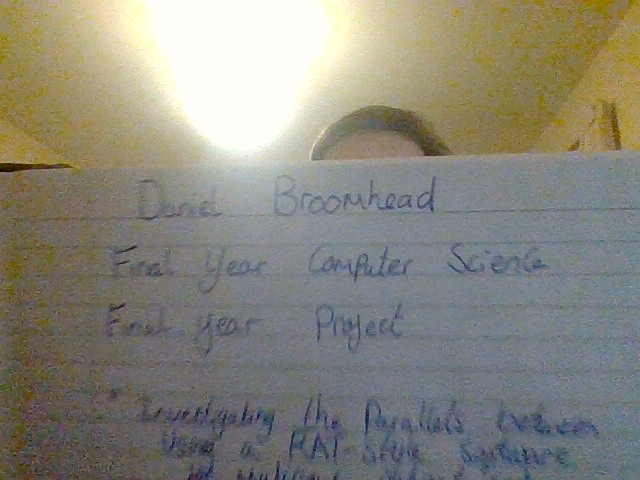 Daniel Broomhead
Final Year Computer Science
Final Year Project
" Investigating the Parallels between
Using a RAT-Style Software